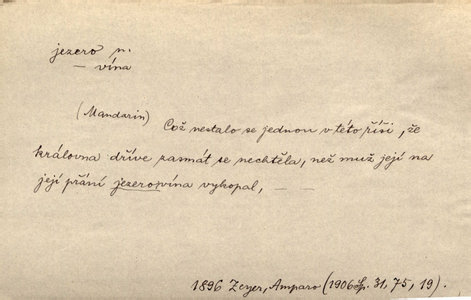 jezero n.
— vína
(Mandarin) Což nestalo se jednou v této říši, že
královna dříve zasmát se nechtěla, než muž její na
její přání jezero vína vykopal, — —
1896 Zeyer, Amparo (1906 Sp. 31, 75, 19).